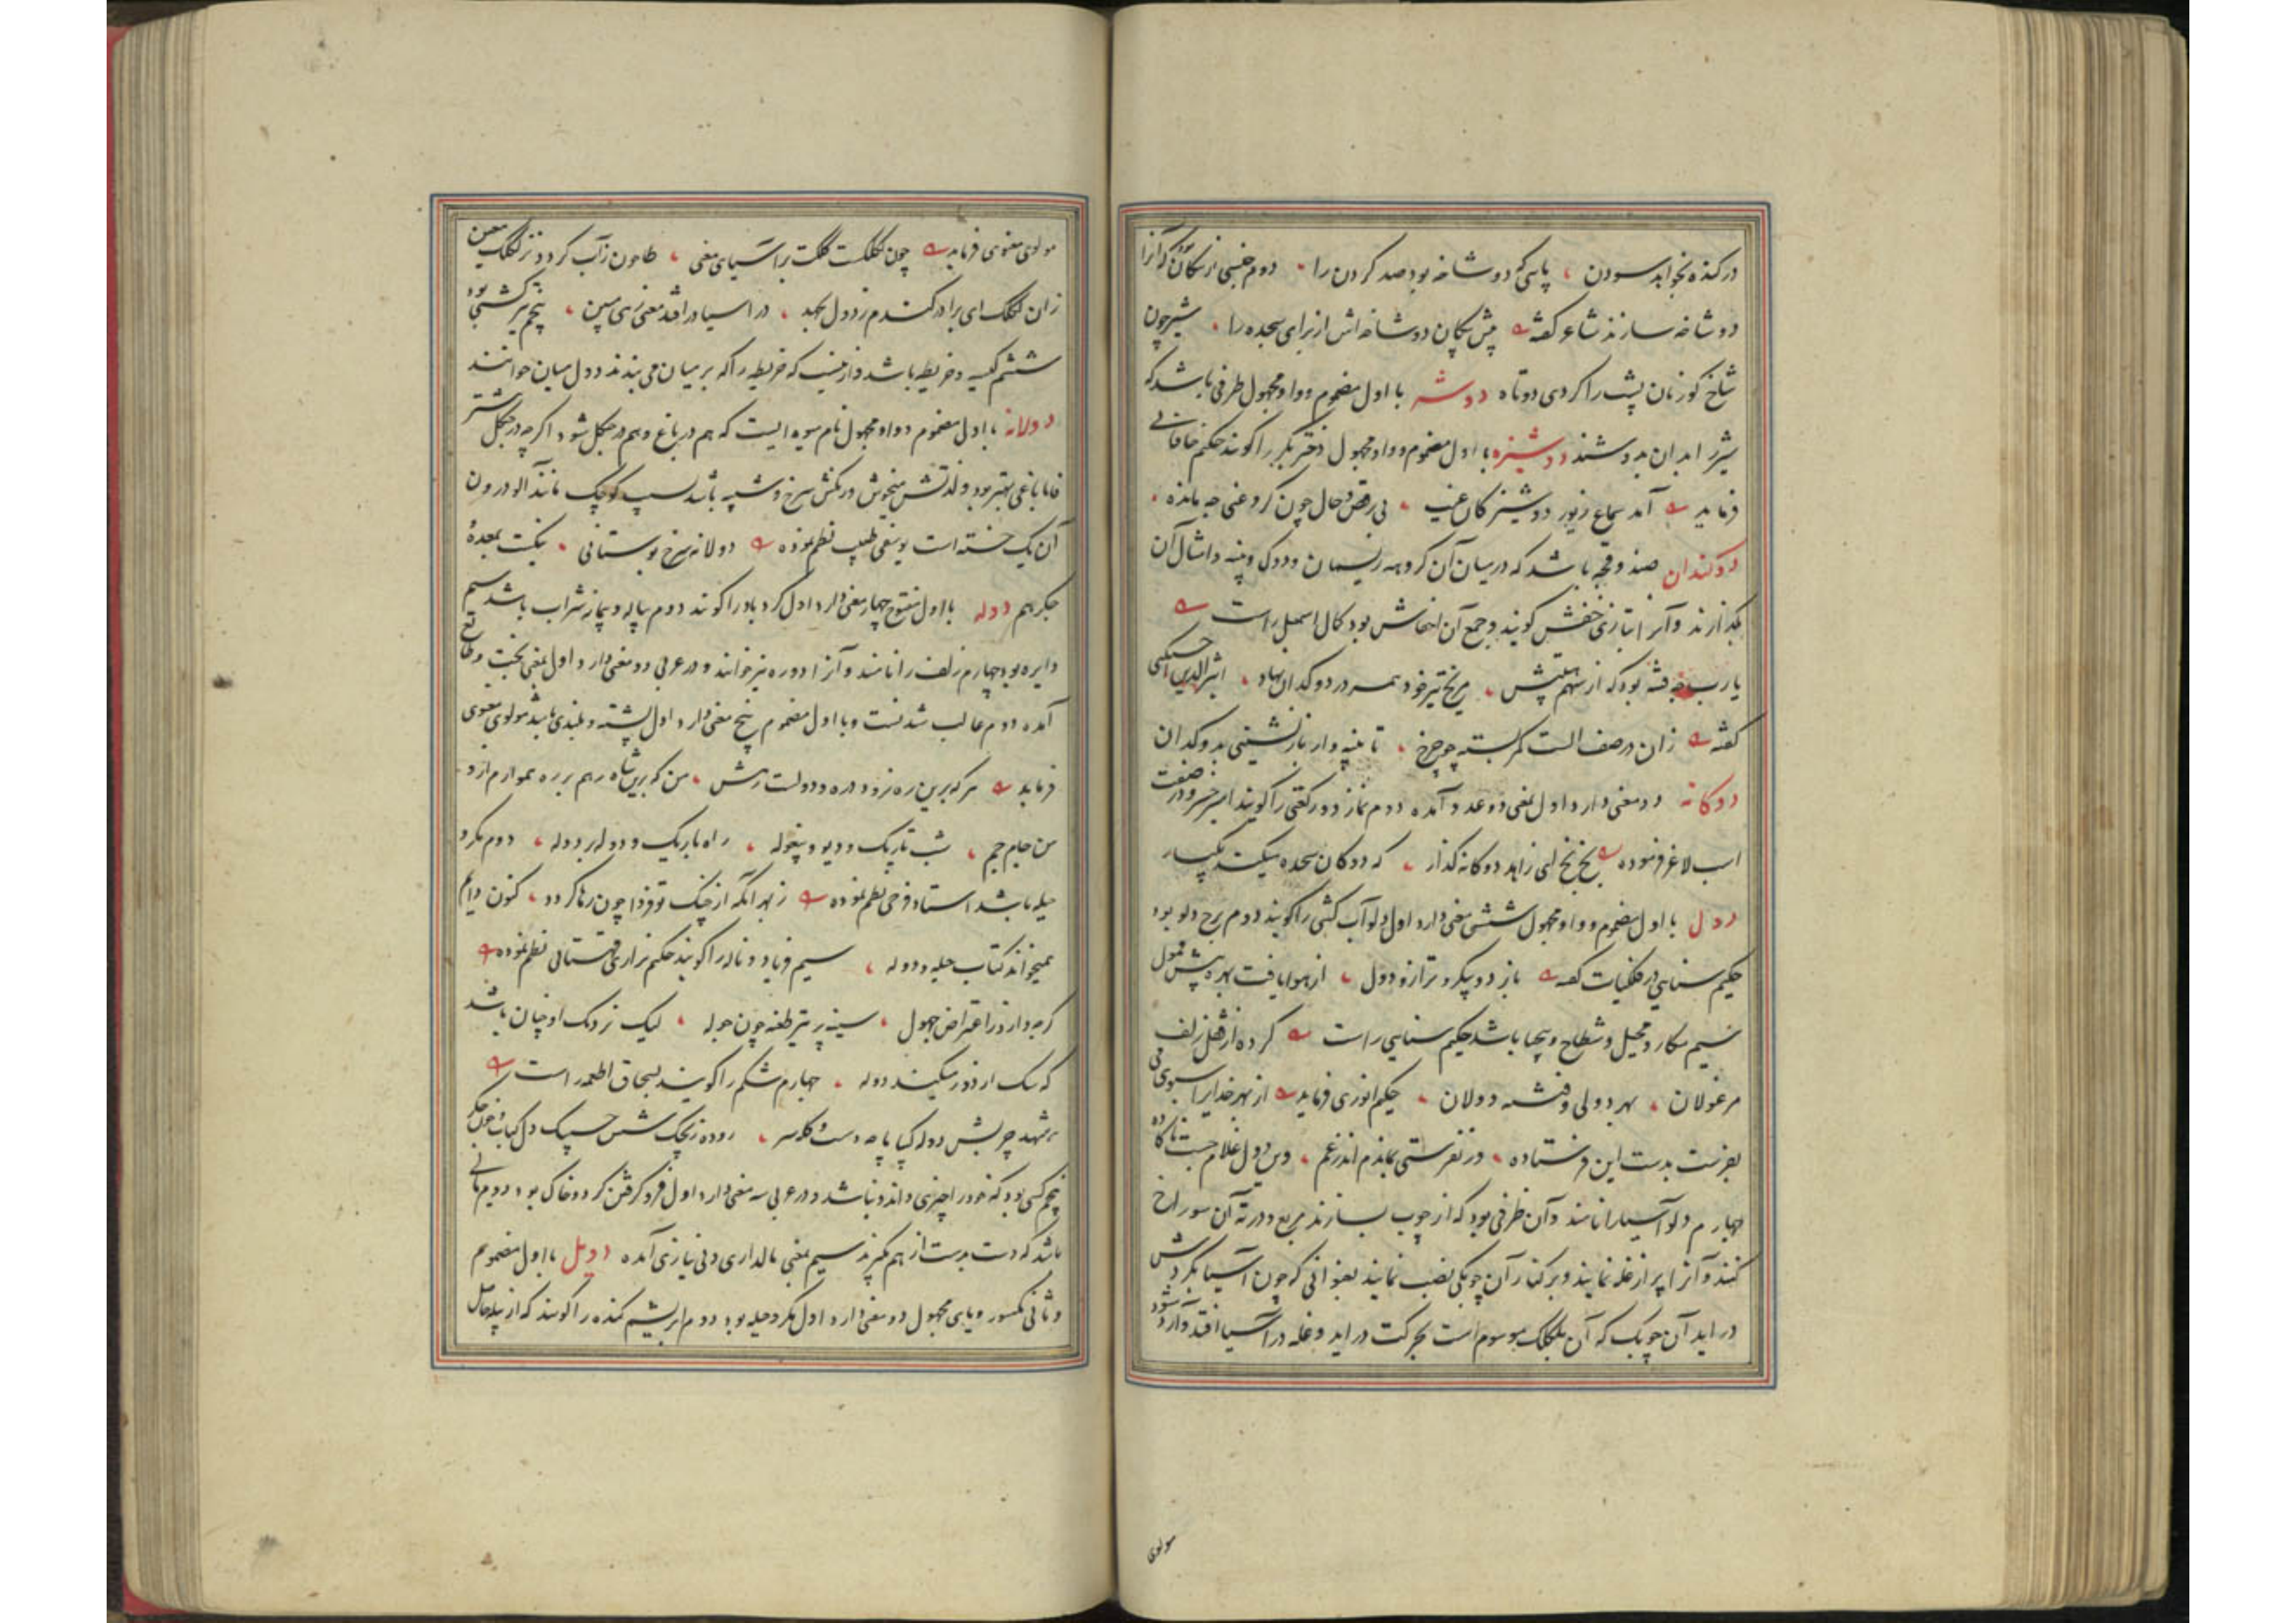 در کنده نخواهد سودن ، پایی که دو شاخه بود صد کردن را ، دوم جنسی از پیکان بود که آنرا
دو شاخه سازند شاعر گفته پیش پیکان دو شاخه اش از برای سجده را ، شیر چون
شاخ گوزنان پشت را کردی دوتاه دوشه با اول مضموم و واو مجهول ظرفی باشد که
شیر را در ان بدوشند دوشیزه با اول مضموم و واو مجهول دختر بکر را گویند حکیم خاقانی
فرماید آمد سماع زیور دوشیزگان غیب ، بی رقص و حال چون کر و عنین چه مانده ،
دوکندان صندوقچه باشد که درمیان آن کروهه ریسمان و دوک و پنبه و امثال آن
بگذارند و آنرا بتازی خفش گویند و جمع آن اخفاش بود کمال اسمعیل راست
یارب چه فتنه بود که از سهم هیبتش ، مریخ تیر خود همه در دوکدان نهاد ، اثیرالدین اخسیکتی
گفته زان در صف الست کمر بسته چو چرخ ، تا پنبه وار باز نشینی بدوکدان
دوکانه دو معنی دارد اول بمعنی دو عدد آمده دوم نماز دو رکعتی را گویند امیر خسرو در صفت
اسب لاغر فرموده بخ بخ ای زاهد دوکانه گذار ، که دوکان سجده میکند یکبار
دول با اول مضموم و واو مجهول شش معنی دارد اول دلو آب کشی را گویند دوم برج دلو بود
حکیم سنایی در فلکیات گفته باز دو پیکر و ترازو و دول ، از هوا یافت بهره بیش قبول
سیم مکار و محیل و شطاح و بیحیا باشد حکیم سنایی راست کرده از قفل زلف
مرغولان ، بهر دولی و فتنه دولان ، حکیم انوری فرماید از بهر خدای را سوی من
بفرست بدست این فرستاده ، ور نفرستی بماندم اندر غم ، وین دول غلام جست ناگاده
چهارم دلو آسیا را نامند و آن ظرفی بود که از چوب بسازند مربع و در ته آن سوراخ
کنند و آنرا پر از غله نمایند و بر کنار آن چوبکی نصب نمایند بعنوانی که چون آسیا بگردش
در اید آن چوبک که آن بلکلک موسوم است بحرکت در اید و غله در آسیا افتد و آرد شود
مولوی
مولوی معنوی فرماید چون لکلکست کلکت بر آسیای معنی ، طاحون ز آب گردد نز لکلک معین
زان لکلک ای برادر گندم ز دول بجهد ، در اسیا در افتد معنی زهی مبین ، پنجم تیر کشتی بود
ششم کیسه و خریطه باشد و ازینست که خریطه را که بر میان می بندند دول میان خوانند
دولانه با اول مضموم و واو مجهول نام میوه ایست که هم در باغ و هم در جنگل شود اگرچه در جنگل بیشتر
فاما باغی بهتر بود و لذتش میخوش و رنگش سرخ و شبیه باشد بسیب کوچک مانند آلو درون
آن یک خسته است یوسفی طبیب نظم نموده دولانه سرخ بوستانی ، نیکست بمعده
جکر هم دوله با اول مفتوح چهار معنی دارد اول گرد باد را گویند دوم پیاله و پیمانه شراب باشد سیم
دایره بود چهارم زلف را نامند و آنرا دوره نیز خوانند و در عربی دو معنی دارد اول بمعنی بخت و طالع
آمده دوم غالب شدنست و با اول مضموم پنج معنی دارد اول پشته و بلندی باشد مولوی معنوی
فرماید هر که برین ره نرود دره و دولست رهش ، من که برین شاه رهم بر ره هموارم ازو
من جام جم ، شب تاریک و دیو و بیغوله ، راه باریک و دوله بر دوله ، دوم مکر و
حیله باشد استاد فرخی نظم نموده ز بهر آنکه از چنگ تو فردا چون رها گردد ، کنون دایم
همیخواند کتاب حیله و دوله ، سیم فریاد و ناله را گویند حکیم نزاری قهستانی نظم نموده
گرچه دارد ز اعتراض جهول ، سینه پر تیر طعنه چون جوله ، لیک نزدیک او چنان باشد
که سک از دور میکند دوله ، چهارم شکم را گویند بسحاق اطعمه راست
پنجم کسی بود که خود را چیزی داند و نباشد و در عربی سه معنی دارد اول فرو گرفتن گرد و خاک بود دوم
باشد که دست بدست از هم گیرند سیم بمعنی مالداری و بی نیازی آمده دویل با اول مضموم
و ثانی مکسور و یای مجهول دو معنی دارد اول مکر و حیله بود دوم ابریشم کنده را گویند که از پیله حاصل